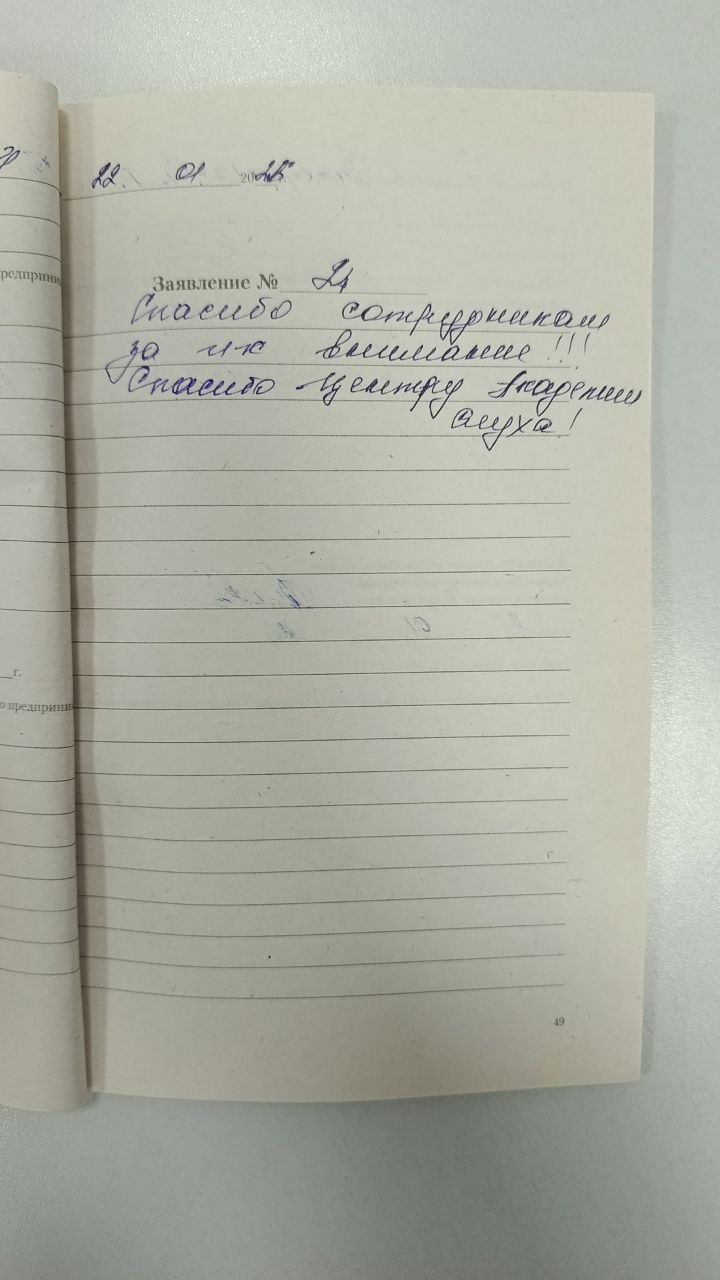 22. 01. 2025
Заявление № 24
Спасибо сотрудникам
за их внимание!!!
Спасибо центру Академии
слуха!
г.
о предприни
49